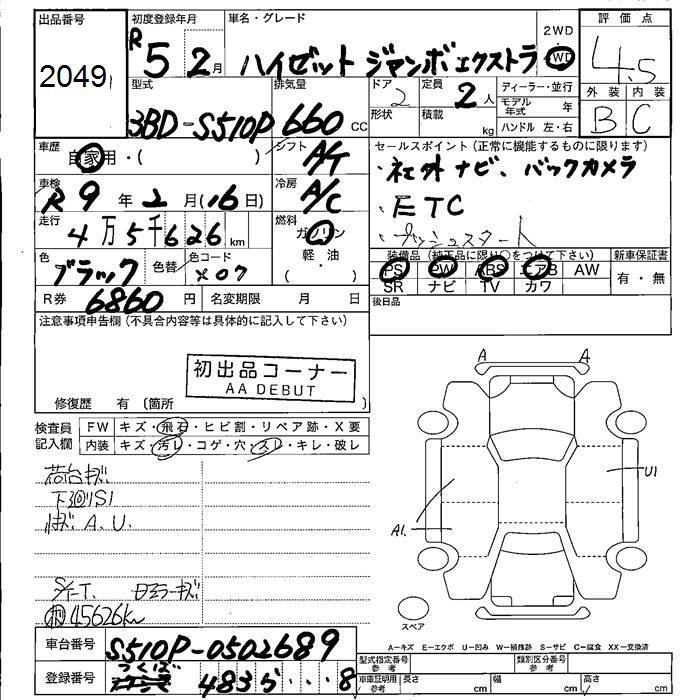 出品番号 2049
初度登録年月 R5 2月
車名・グレード ハイゼット ジャンボエクストラ
2WD
4WD
評価点 4.5
外装 B 内装 C
型式 3BD-S510P
排気量 660 CC
ドア 2 形状
定員 2人 積載 kg
ディーラー・並行
モデル年式 年
ハンドル 左・右
車歴 自家用・( )
シフト A/T
セールスポイント(正常に機能するものに限ります)
・社外ナビ、バックカメラ
・ETC
・プッシュスタート
車検 R9年2月(16日)
冷房 A/C
走行 4万5千626km
燃料 ガソリン 軽・油( )
色 ブラック 色替 色コード X07
装備品(純正品に限り○をつけて下さい)
PS PW ABS エアB AW
SR ナビ TV カワ
新車保証書 有・無
R券 6860円 名変期限 月 日
後日品
注意事項申告欄(不具合内容等は具体的に記入して下さい)
初出品コーナー
AA DEBUT
修復歴 有(箇所 )
検査員記入欄
FW キズ・飛石・ヒビ割・リペア跡・X要
内装 キズ・汚レ・コゲ・穴・スレ・キレ・破レ
荷台キズ
下廻リS1
A.U.
45626km
A A
A1. U1
スペア
A=キズ E=エクボ U=凹み W=補修跡 S=サビ C=腐食 XX=交換済
車台番号 S510P-0502689
登録番号 つくば 483 ・・・8
型式指定番号 参考
類別区分番号 参考
車庫証明用 参考 長さ cm 幅 cm 高さ cm